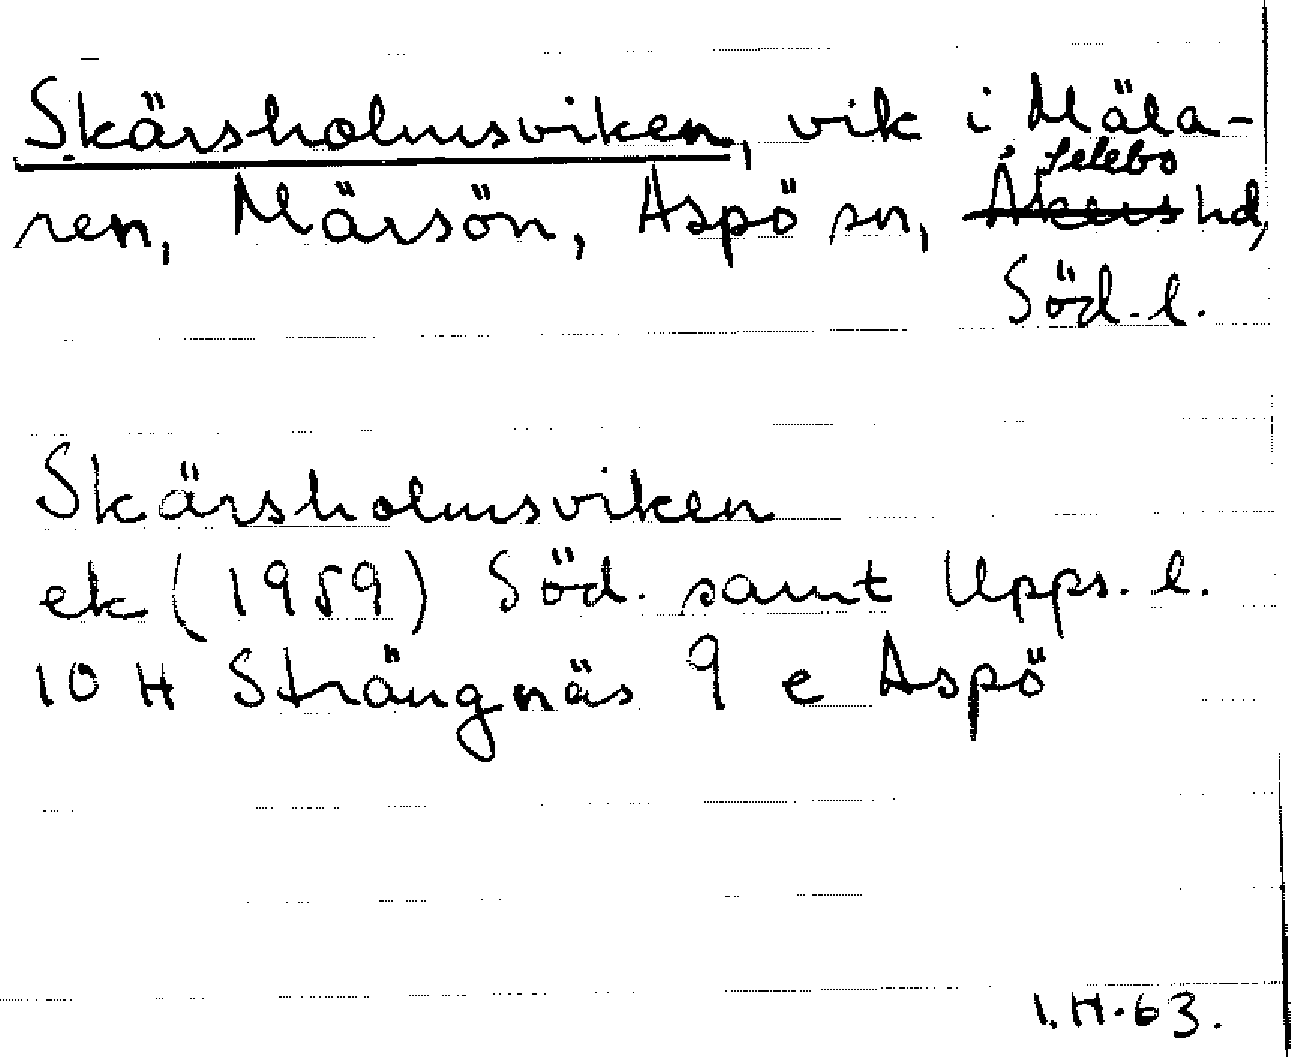 Skärsholmsviken, vik i Mäla-
Selebo
ren, Märsön, Aspö sn, Åkers hd,
Söd. l.
Skärsholmsviken
ek (1959) Söd. samt Upps. l.
10 H Strängnäs 9 e Aspö
I.H.63.